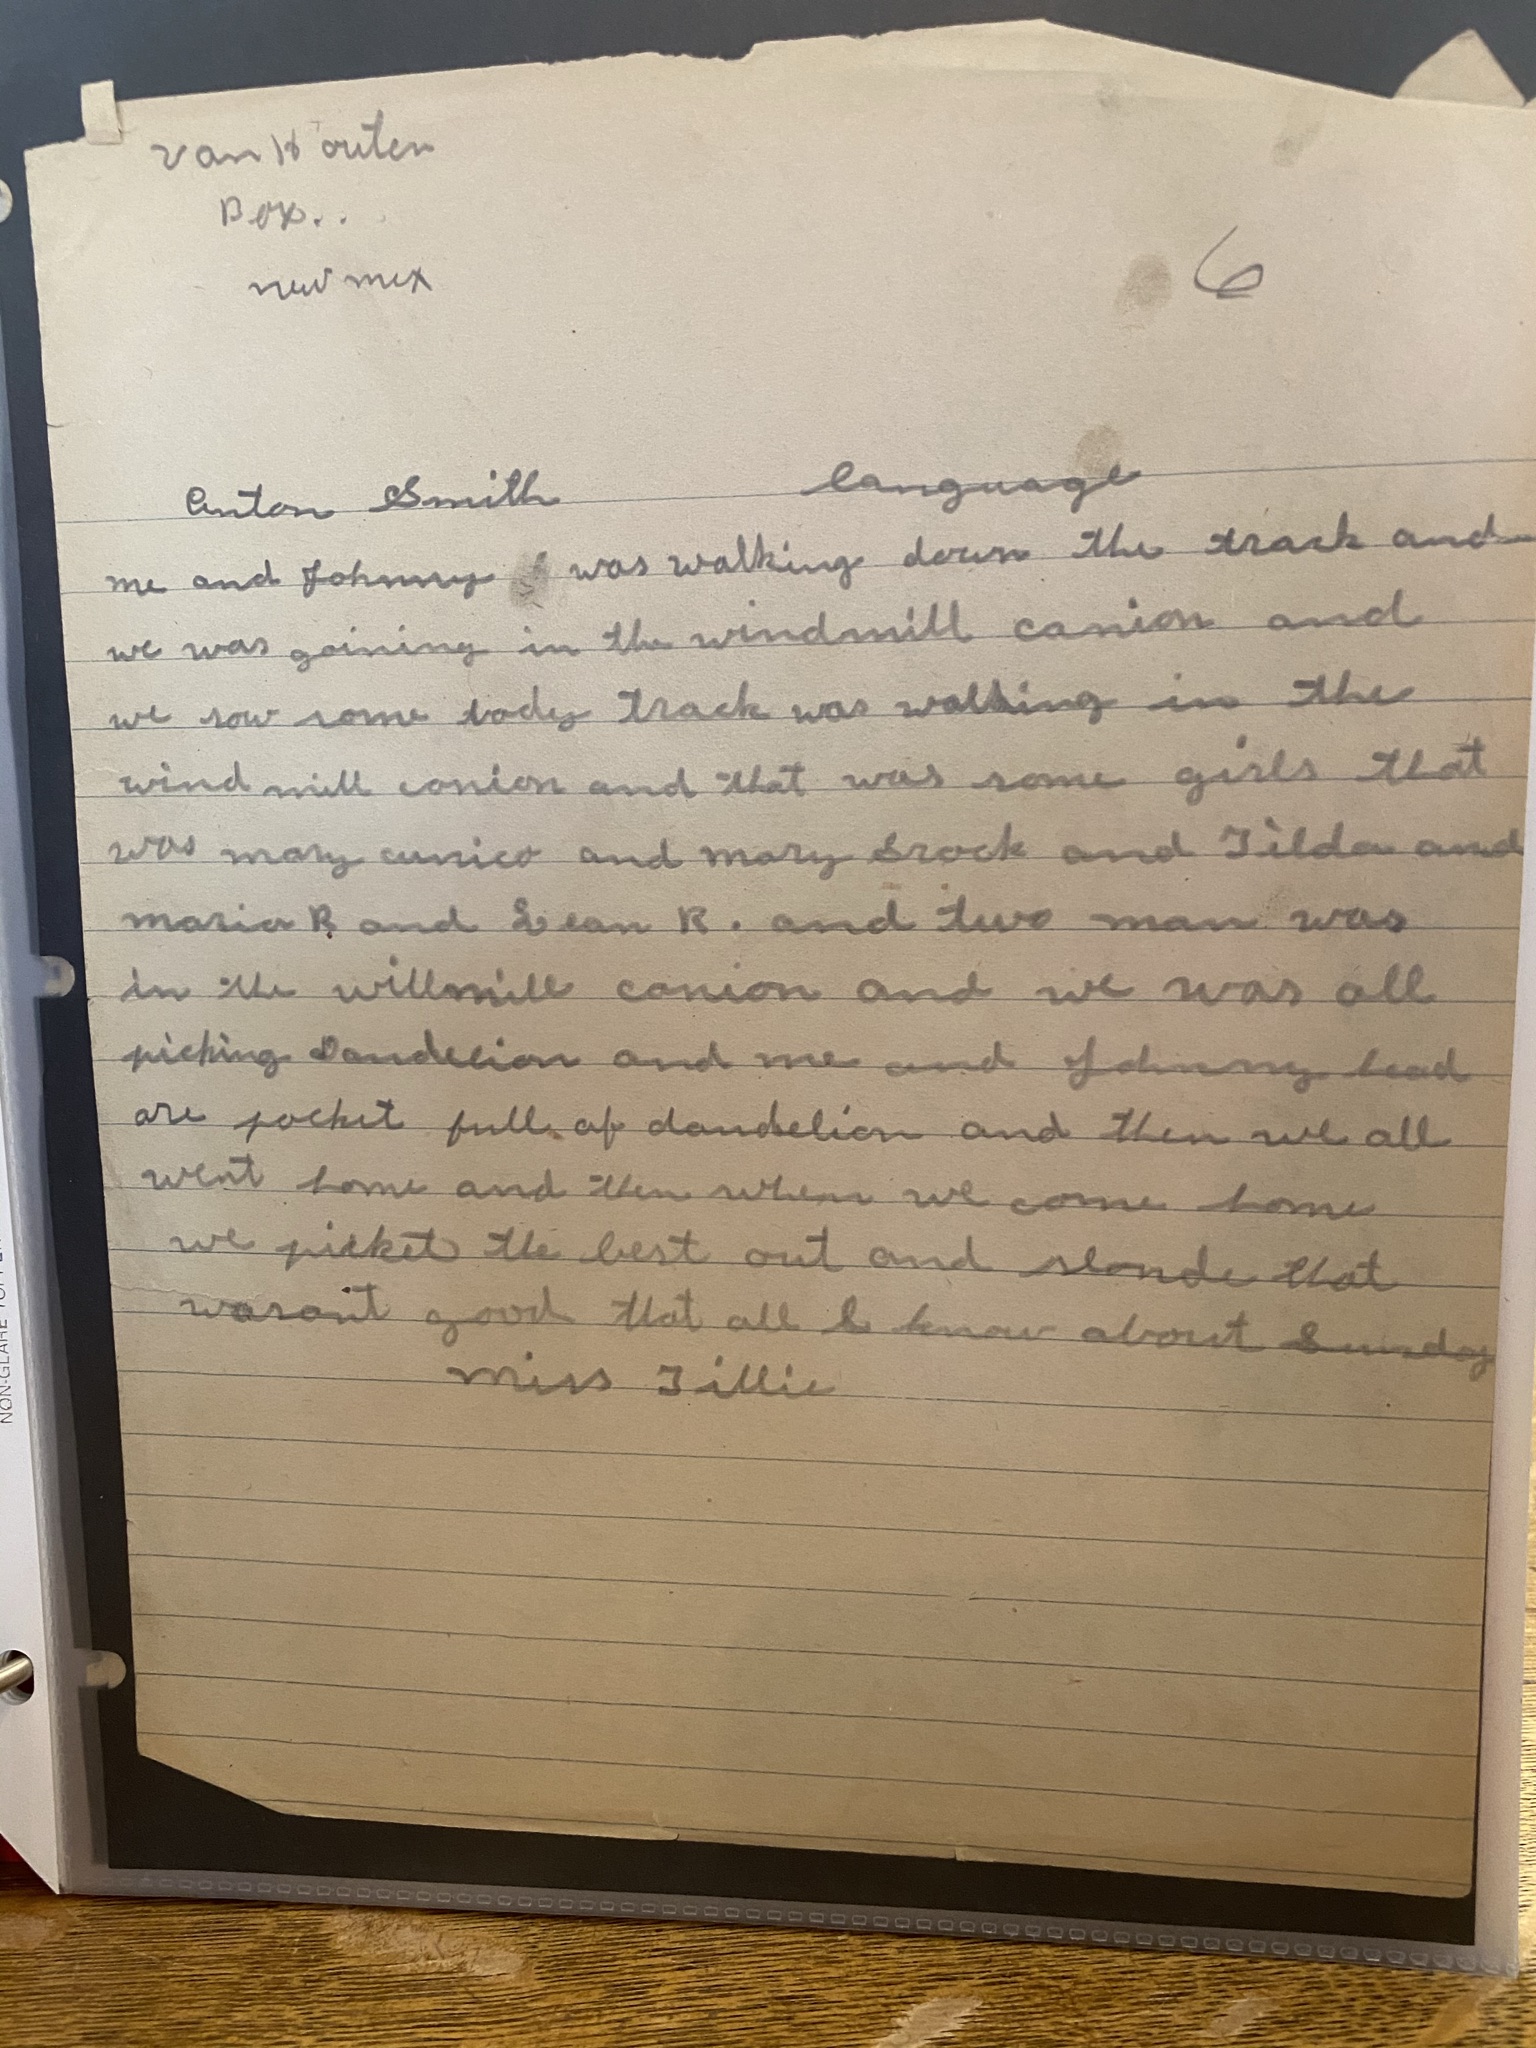 Van Houten
Box..
new mex
6
Anton Smith language
me and Johnny was walking down the track and
we was goining in the windmill canion and
we sow some body track was walking in the
wind mill conion and that was some girls that
was mary cunico and mary Srock and Tilda and
maria R and Lean R. and two man was
in the willmill conion and we was all
picking Dandelion and me and Johnny head
are pocket full of dandelion and then we all
went home and then when we come home
we picket the best out and that
wasont good that all I know about Sunday
Miss Tillie